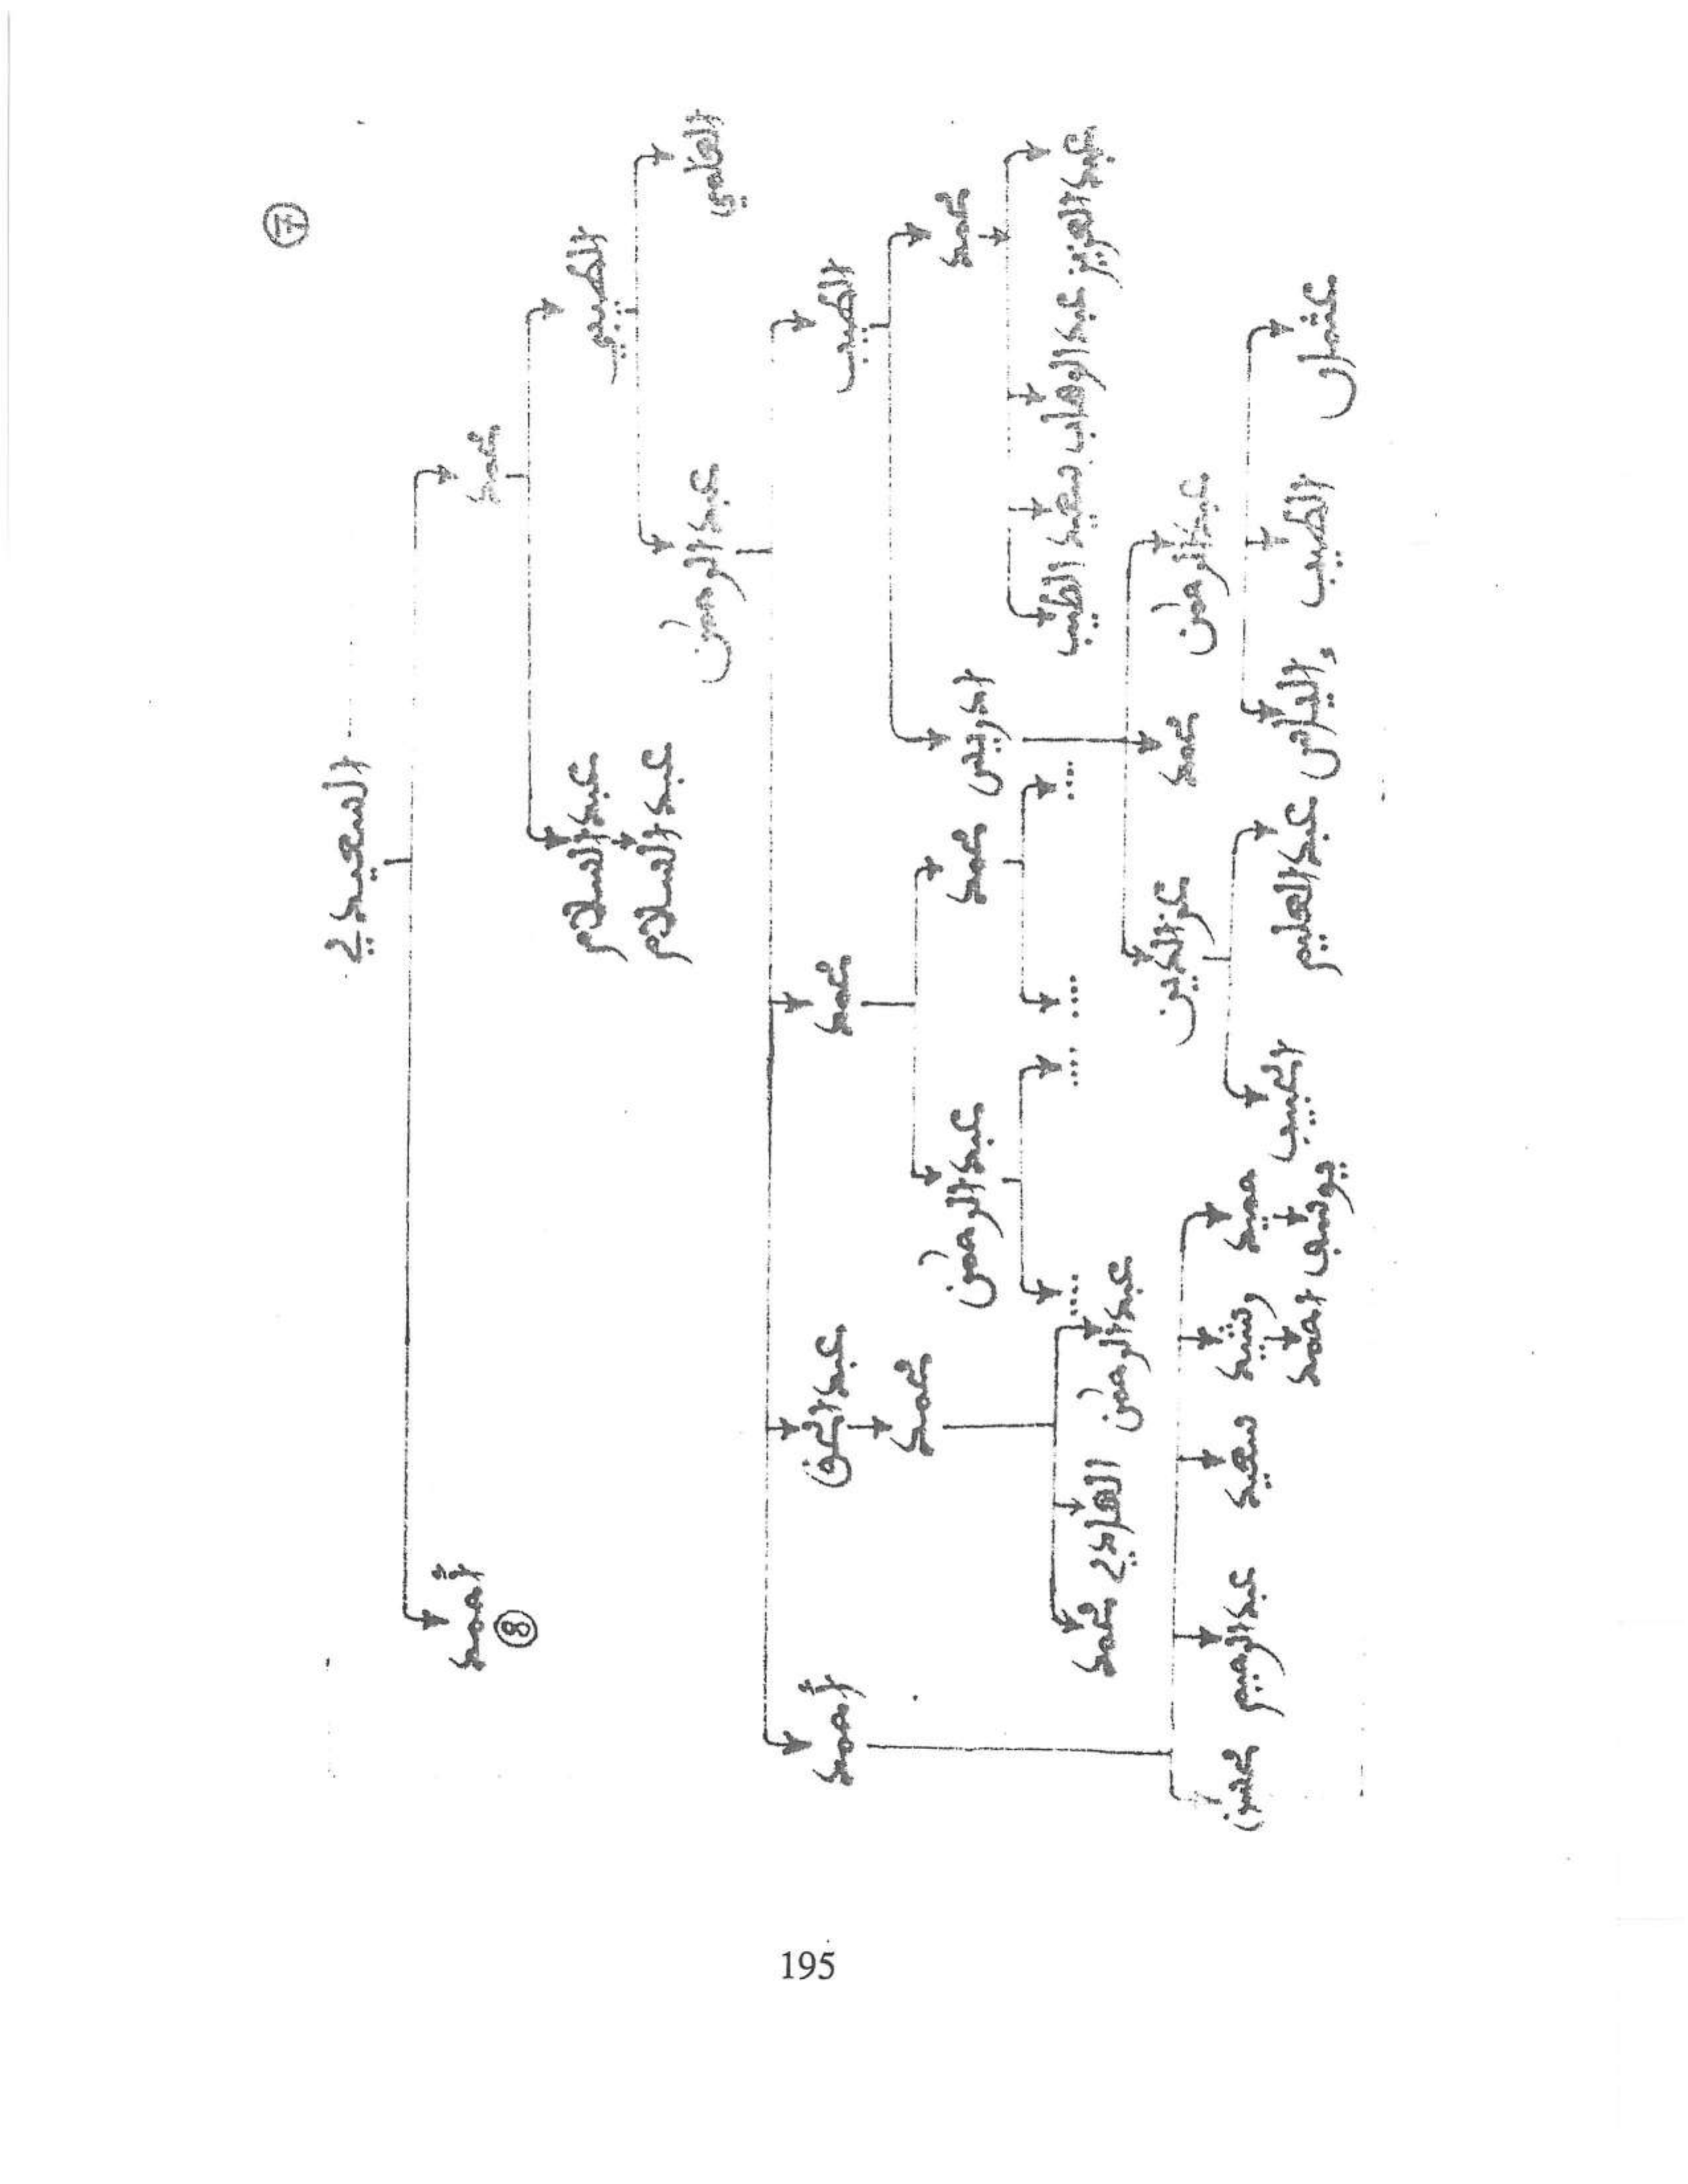 ⑦
السعيدي
محمد
أحمد
⑧
الطيبي
عبد السلام
عبد السلام
العلمي
عبد الرحمن
الطيب
محمد
عبد الحق
أحمد
محمد
ادريس
محمد
عبد الرحمن
محمد
عبد العزيز عبد الوهاب سعيد الطيب
.... .... .... ....
عبد الرحمن الهادي محمد
عبد الرحمن
محمد
عز الدين
حميد رشيد سعيد عبد الرحيم محسن
عثمان الطيب إلياس عبد العليم الحبيب
يوسف احمد
195